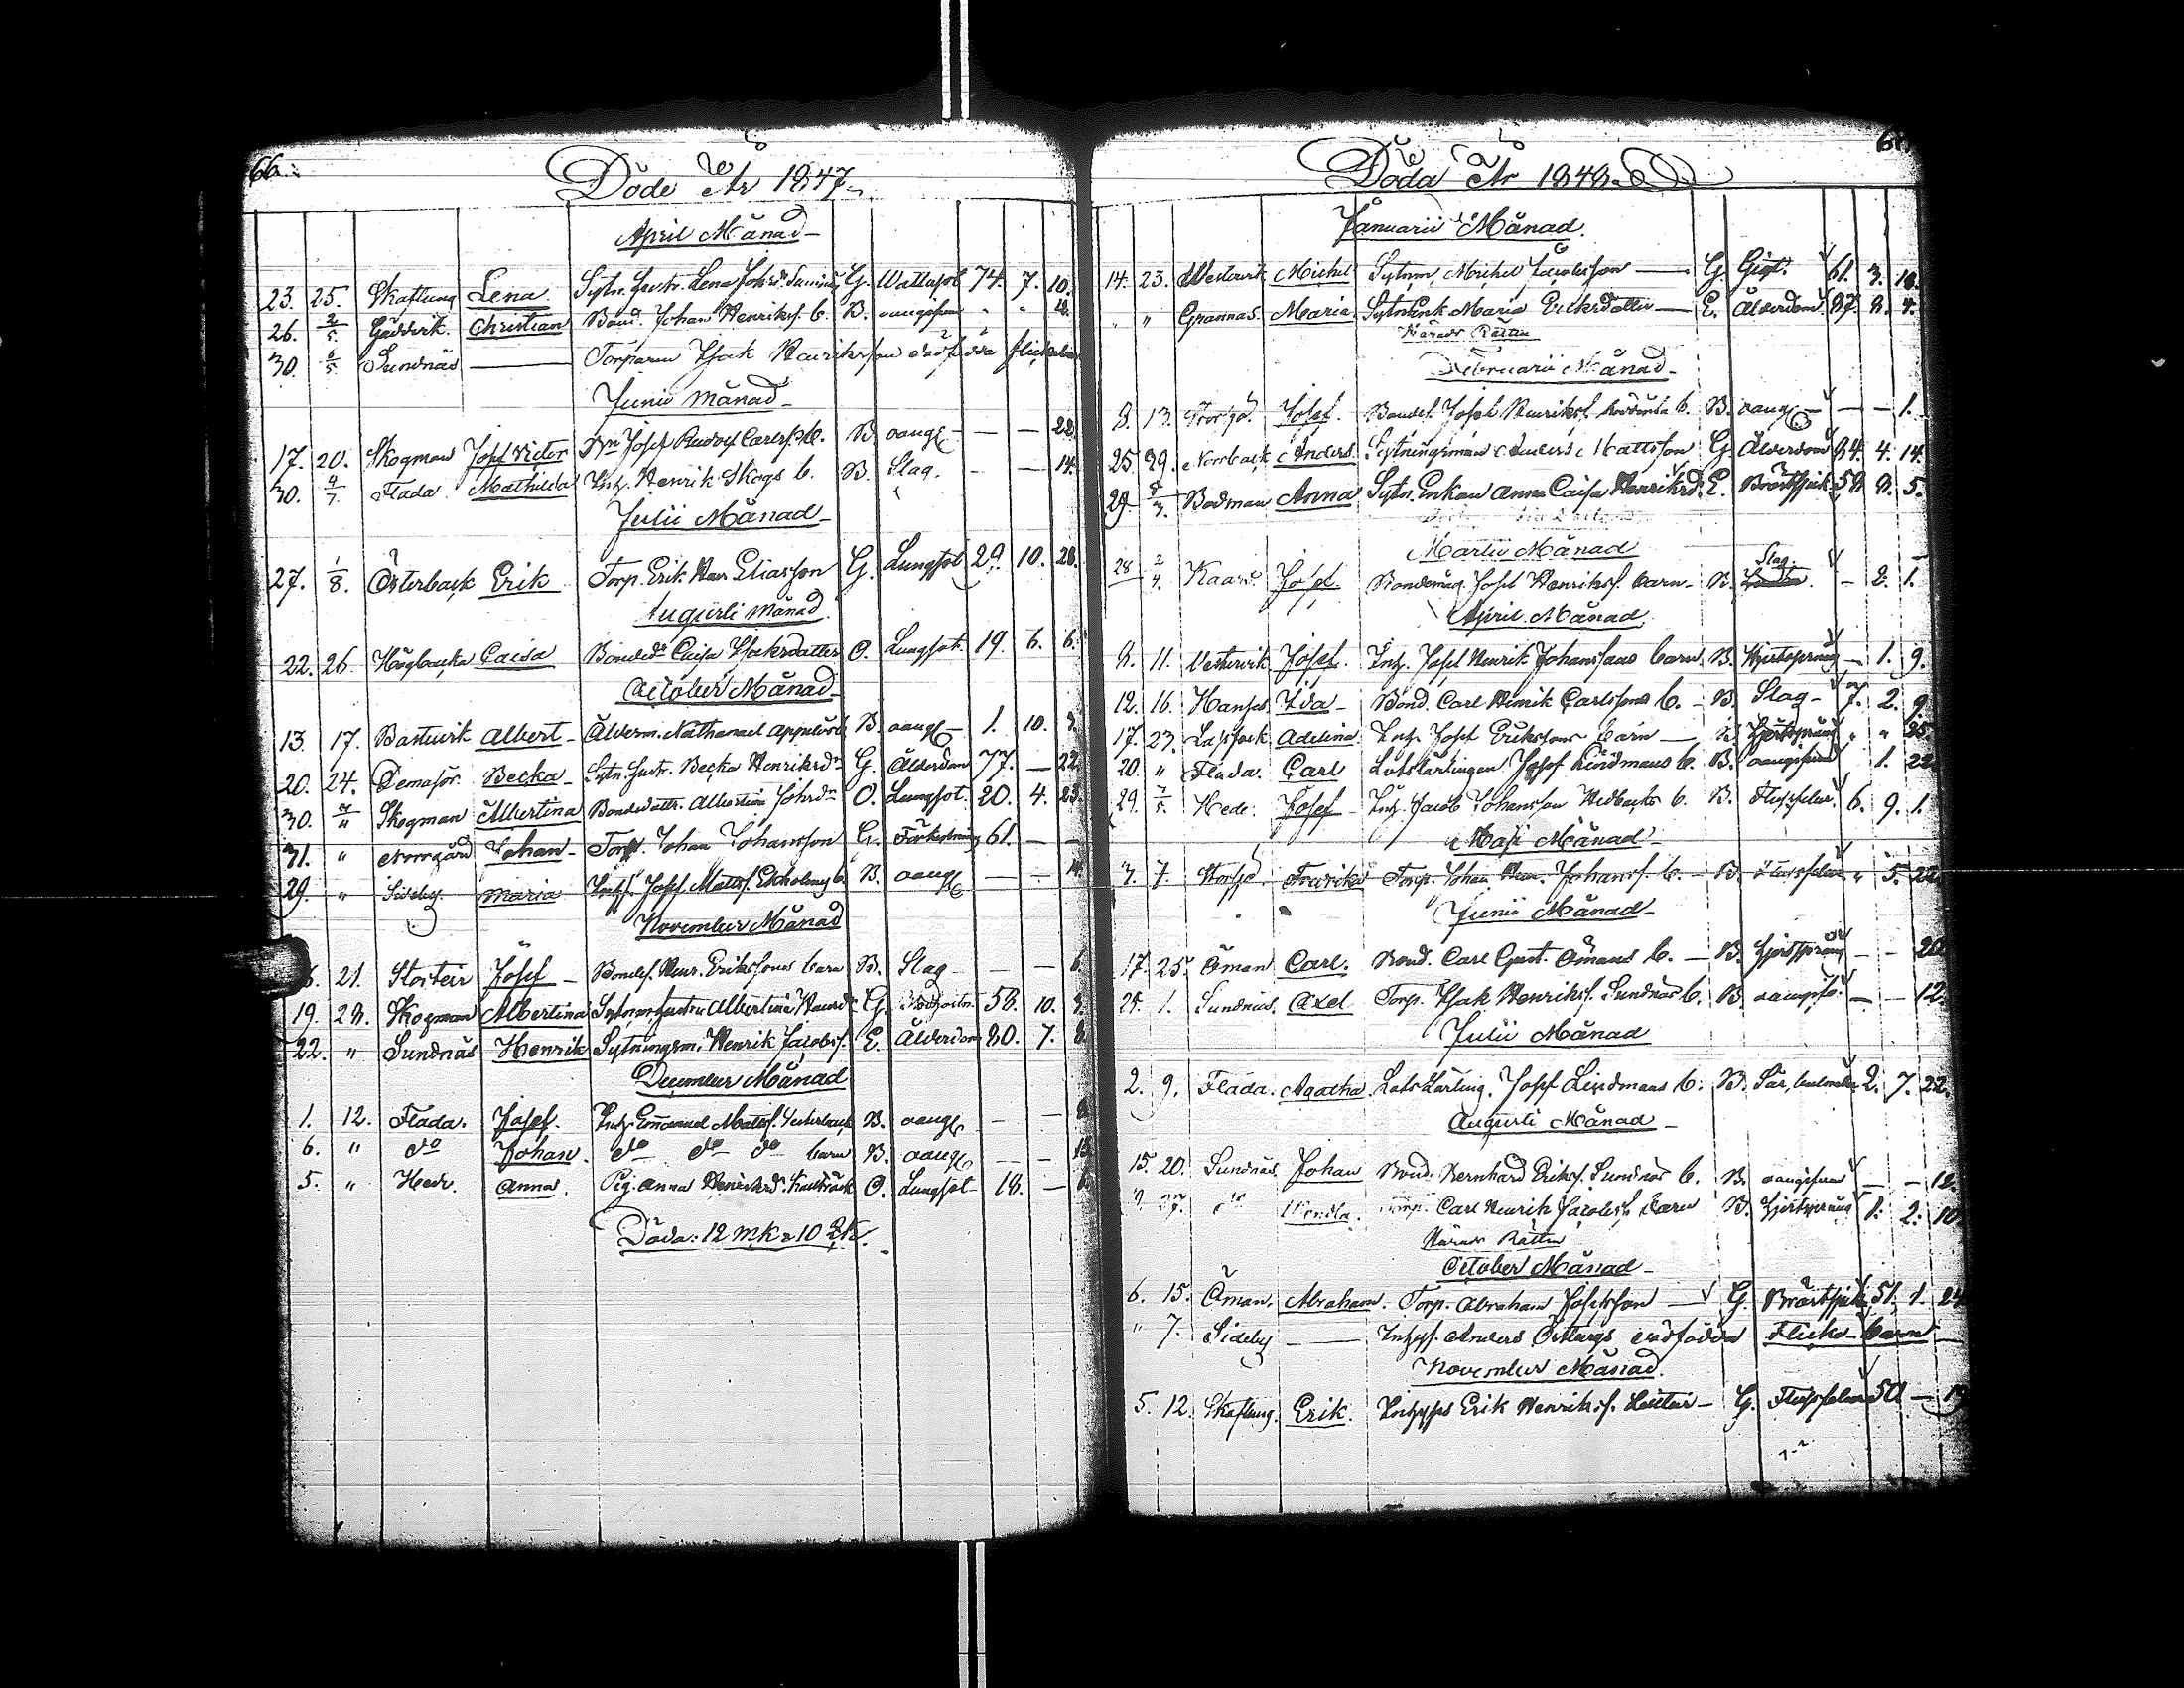 66.
Döde År 1847.
April Månad
23. 25. Skaftung Lena. Sytn. hustr. Lena Johsdr G. Wattusot 74. 7. 10.
26. 2/5 Gädderik. Christian Bond. Johan Henriksf. b. B. oangifven " "
30. 6/5 Sundnäs — Torparen Isak Henriksson dödfödda flickebarn
Junii månad
17. 20. Skogman Josef Victor Josef Rudolf Carlss. b. B. oangf — — 22
30. 4/7 Flada. Mathilda Inh. Henrik Skogs b. B. Slag. — — 14.
Julii Månad
27. 1/8. Österback Erik Torp. Erik Hen Eliasson G. Lungsot 29. 10. 28.
Augusti Månad
22. 26. Högbacka Caisa Bondedr Caisa Isaksdatter O. Lungsot. 19. 6. 6.
October Månad
13. 17. Bastuvik Albert Ålderm. Nathanael Applöls b. B. oangf 1. 10.
20. 24. Becka Sytn. hustr. Becka Henriksdr G. Ålderdom 77. — 22.
30. Skogman Albertina Bondedottr. Albertina Johsdr O. Lungsot. 20. 4. 23.
31. " Norrgård Johan Torp. Johan Johansson G. Förkylning 61. — —
29. " Sideby. Maria Inh. Josef Mattsf. Ekholms b. B. oangf — —
November Månad
21. Storteir Josef Bondes. Henr. Erikssons barn B. Slag — — 6.
19. 28. Skogman Albertina Sytningshustru Albertina G. 58. 10.
22. " Sundnäs Henrik Sytningsm. Henrik Jacobsf. E. Ålderdom 80. 7. 8.
December Månad
1. 12. Flada. Josef. Inh. Emanuel Mattsf. B. oangf — —
6. " do Johan. do do do barn B. oangf — —
5. " Hede. Anna. Pig. Anna Henriksdr. O. Lungsot 18. —
Döda: 12 mk & 10 qk.
Döda År 1848.
Januarii Månad.
14. 23. Westervik Michel Sytnm. Michel Jacobsson — G. Gigt. 61. 3. 18.
" " Grannas. Maria Sytnenk Maria Ericksdatter — E. Ålderdom 87. 8. 4.
Härads Rätten
Februarii Månad
8. 13. Storsjö. Josef. Bondes. Josef Henriksf. b. B. oangf — — 1.
25. 29. Norrback Anders. Sytningsman Anders Mattsson G. Ålderdom 84. 4. 14.
29. Bodman Anna Sytn. Enkan Anna Caisa Henriksd. E. Bröstsjuk 58. 8. 5.
Martii Månad
28 2/4. Kaars. Josef Bondemåg. Josef Henriksf. barn B. Slag. — 2. 1.
April Månad
8. 11. Westervik Josef. Inh. Josef Henrik Johanssons barn B. Hjertsprång — 1. 9.
12. 16. Hansas Ida Bond. Carl Henrik Carlssons b. B. Slag 7. 2. 9.
17. 23. Adelina Inh. Josef Erikssons barn — B. Hjertsprång " " 25
20. " Flada. Carl Lotslärlingen Josef Lindmans b. B. oangifven 1. 22.
29. 7/5. Hede. Josef Inh. Jacob Johansson Hedbacks b. B. Flussfeber. 6. 9. 1.
Maji Månad
3. 7. Storsjö. Fredrika Torp. Johan Hen. Johansf. b. B. Flussfeber " 5. 22
Junii Månad
17. 25. Öman Carl. Bond. Carl Gust. Ömans b. — B. Hjertsprång — — 20
25. 1. Sundnäs. Axel Torp. Isak Henriksf. Sundnäs b. B. oangifv. — — 12.
Julii Månad
2. 9. Flada. Agatha Lotslärling. Josef Lindmans b. B. 2. 7. 22.
Augusti Månad
15. 20. Sundnäs Johan Bond. Bernhard Eriksf. Sundnäs b. B. oangifven — — 12.
27. do Torp. Carl Henrik Jacobsf. barn B. Hjertsprång 1. 2. 10
Härads Rätten
October Månad
6. 15. Öman. Abraham. Torp. Abraham Josefsson — G. Bröstsjuk 51. 1. 24
" 7. Sideby — Inhys. Anders Östbergs dödfödda Flicke barn —
November Månad.
5. 12. Skaftung. Erik. Inhyses Erik Henriksf. G. Flussfeber 50 — 19